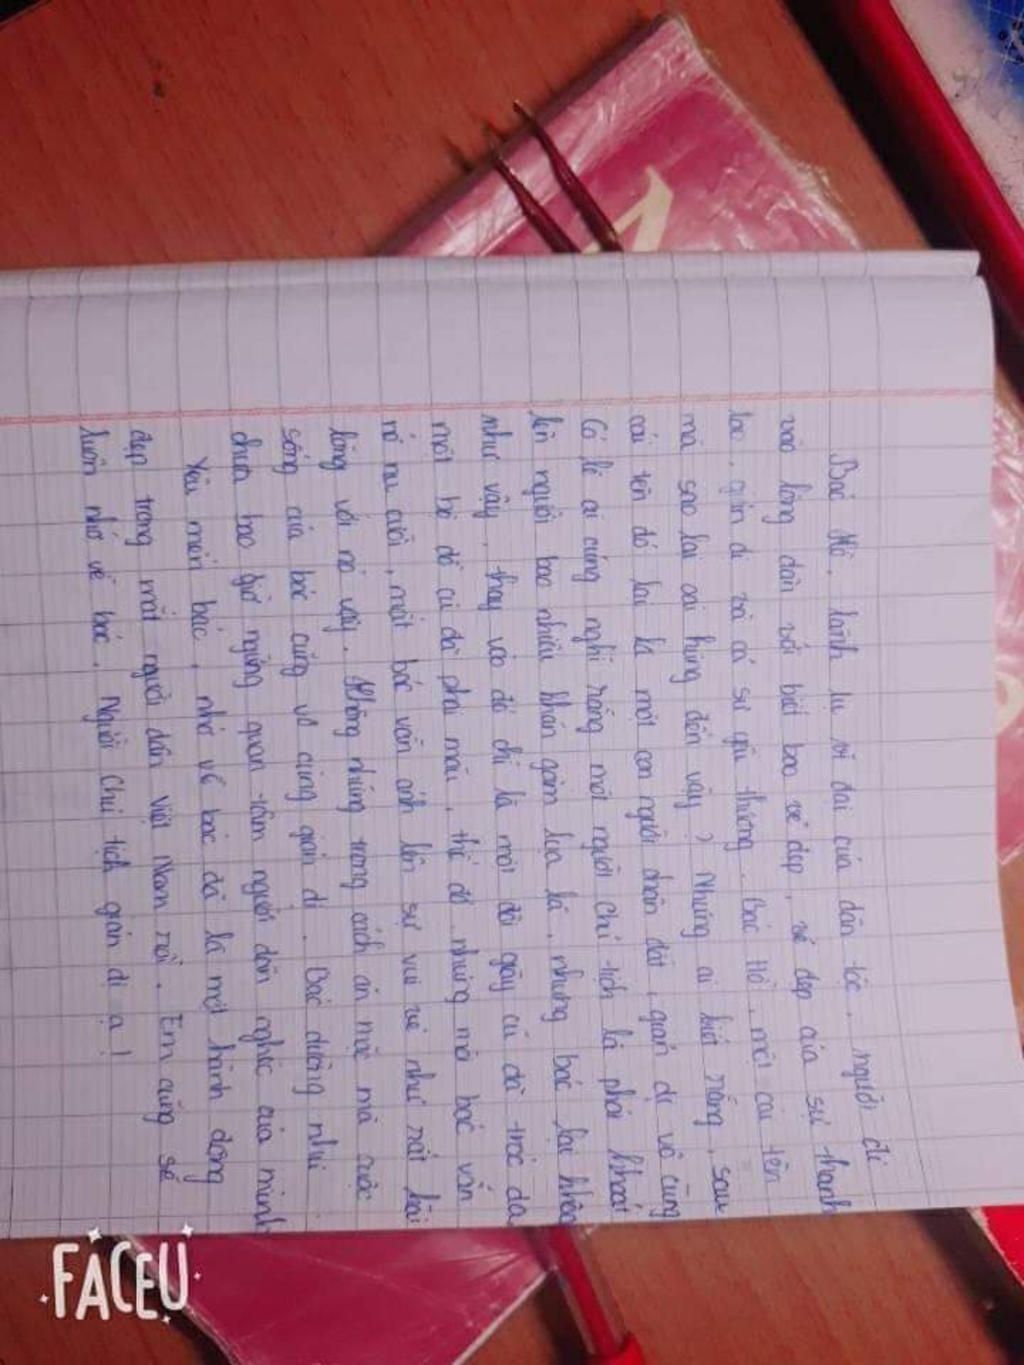 Bác Hồ, lãnh tụ vĩ đại của dân tộc, người đi
vào lòng dân với biết bao vẻ đẹp, vẻ đẹp của sự thanh
cao, giản dị và cả sự yêu thương. Bác Hồ, một cái tên
mà sao lại oai hùng đến vậy? Nhưng ai biết rằng, sau
cái tên đó lại là một con người chân đất, giản dị vô cùng
Có lẽ ai cũng nghĩ rằng một người Chủ tịch là phải khoác
lên người bao nhiêu khăn gấm lụa là, nhưng bác lại không
như vậy, thay vào đó chỉ là một đôi giày cũ đã tróc da
một bộ đồ cũ đã phai màu, thế đó nhưng mà bác vẫn
nở nụ cười, mắt bác vẫn ánh lên sự vui vẻ như rất hài
lòng với nó vậy. Không những trong cách ăn mặc mà cuộc
sống của bác cũng vô cùng giản dị. Bác dường như
chưa bao giờ ngừng quan tâm người dân nghèo của mình
Yêu mến bác, nhớ về bác đã là một hành động
đẹp trong mắt người dân Việt Nam rồi. Em cũng sẽ
luôn nhớ về bác, Người Chủ tịch giản dị ạ!
FACEU